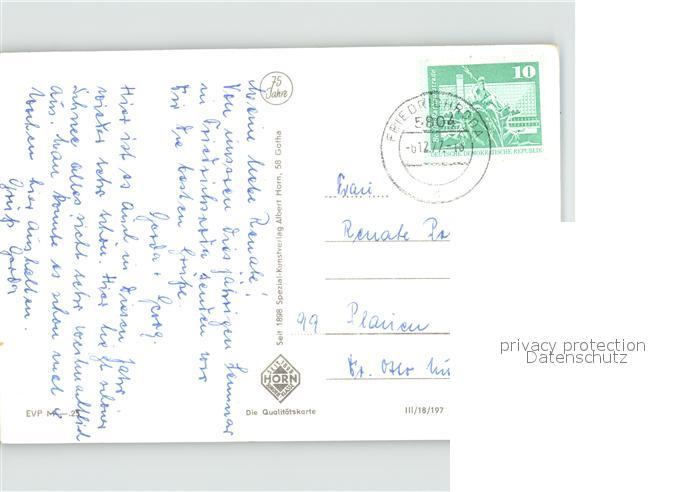 Meine liebe Renate!
Von unserem diesjährigen Seminar
in Friedrichroda senden wir
Dir die besten Grüße.
Gerda + Georg.
Hier ist es auch in diesem Jahr
wieder sehr schön. Hier liegt schöner
Schnee alles sieht sehr weihnachtlich
aus. Man könnte es schon
Wochen hier aushalten.
Gruß Gerda
75
Jahre
Seit 1898 Spezial-Kunstverlag Albert Horn, 58 Gotha
HORN
EVP M -.25
Die Qualitätskarte
III/18/197
10
DEUTSCHE DEMOKRATISCHE REPUBLIK
FRIEDRICHRODA
5804
-6.12.77-18
Frau
Renate
99 Plauen
Dr. Otto
privacy protection
Datenschutz